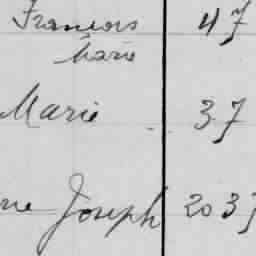 Francois 47
Marie
Marie 37
ne Joseph 2037